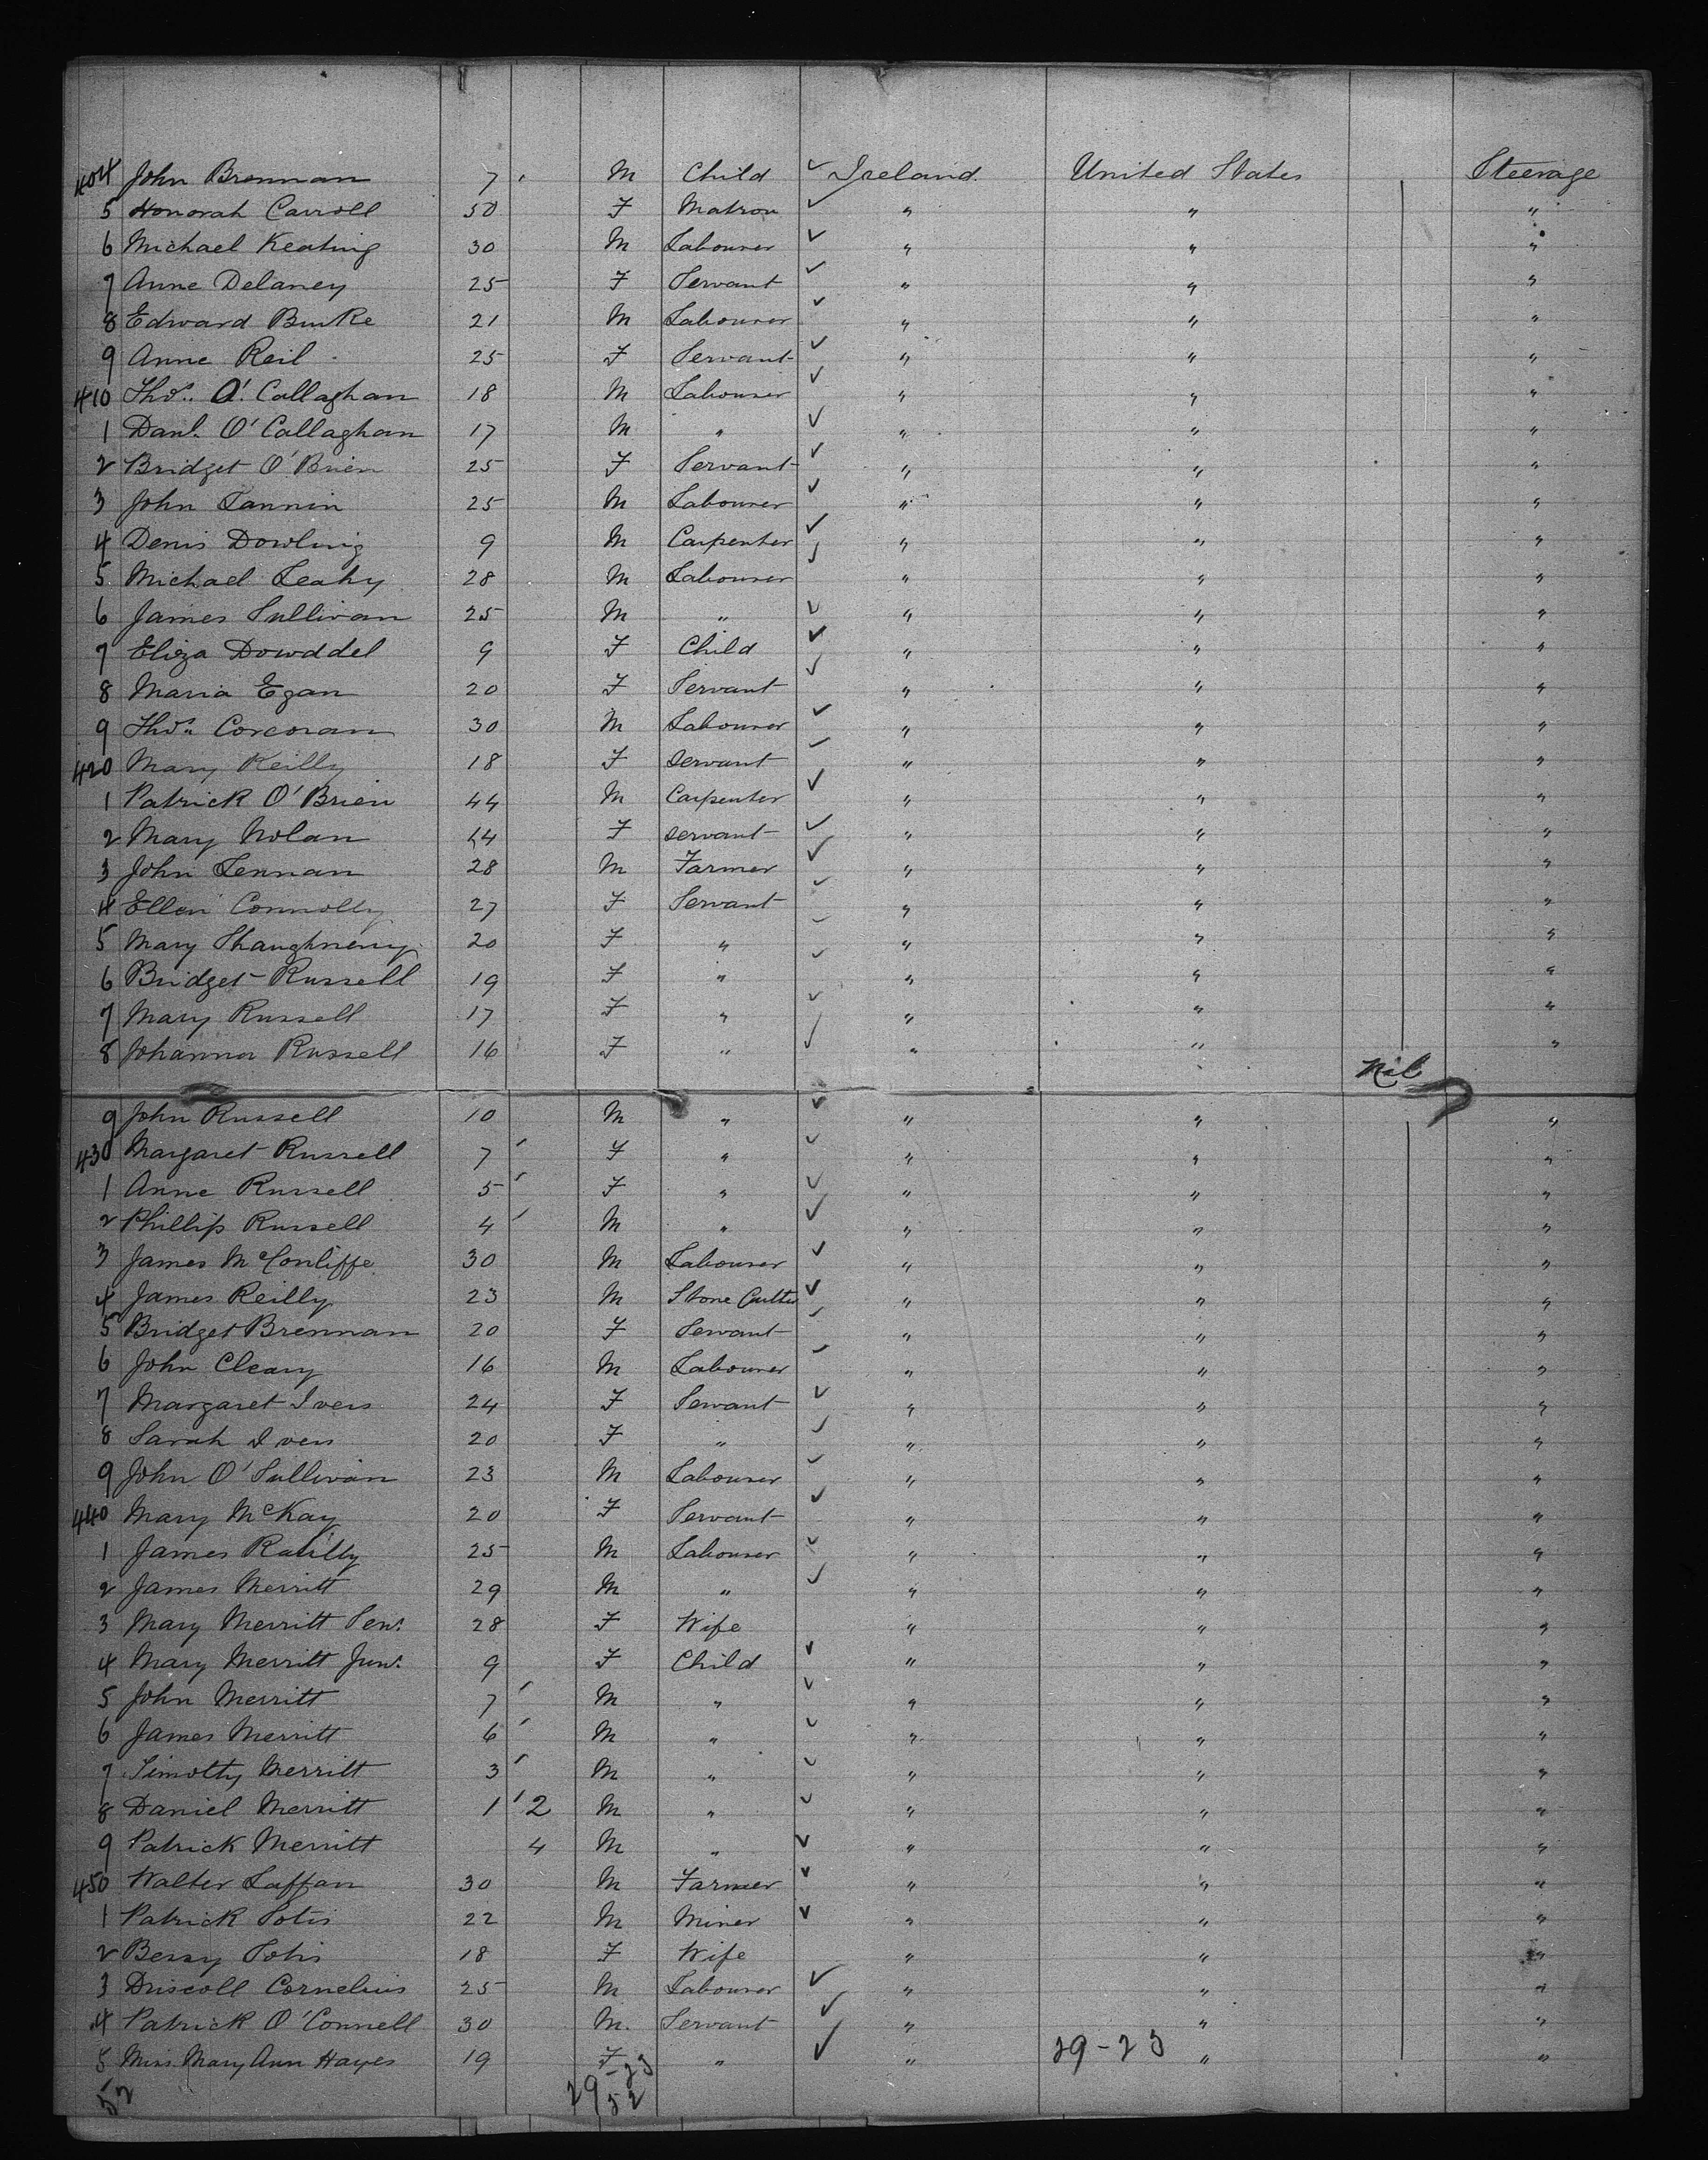 404 John Brennan 7 ' M Child ✓ Ireland. United States Steerage
5 Honorah Carroll 50 F Matron ✓ " " "
6 Michael Keating 30 M Labourer ✓ " " "
7 Anne Delaney 25 F Servant ✓ " " "
8 Edward Burke 21 M Labourer ✓ " " "
9 Anne Reil 25 F Servant ✓ " " "
410 Thos. O'Callaghan 18 M Labourer ✓ " " "
1 Danl. O'Callaghan 17 M " ✓ " " "
2 Bridget O'Brien 25 F Servant ✓ " " "
3 John Lannin 25 M Labourer ✓ " " "
4 Denis Dowling 9 M Carpenter ✓ " " "
5 Michael Leahy 28 M Labourer ✓ " " "
6 James Sullivan 25 M " ✓ " " "
7 Eliza Dowddel 9 F Child ✓ " " "
8 Maria Egan 20 F Servant ✓ " " "
9 Thos. Corcoran 30 M Labourer ✓ " " "
420 Mary Reilly 18 F Servant ✓ " " "
1 Patrick O'Brien 44 M Carpenter ✓ " " "
2 Mary Nolan 14 F Servant ✓ " " "
3 John Lennan 28 M Farmer ✓ " " "
4 Ellen Connolly 27 F Servant ✓ " " "
5 Mary Shaughnessy 20 F " ✓ " " "
6 Bridget Russell 19 F " ✓ " " "
7 Mary Russell 17 F " ✓ " " "
8 Johanna Russell 16 F " ✓ " " "
Nil
9 John Russell 10 M " ✓ " " "
430 Margaret Russell 7 ' F " ✓ " " "
1 Anne Russell 5 ' F " ✓ " " "
2 Phillip Russell 4 ' M " ✓ " " "
3 James McConliffe 30 M Labourer ✓ " " "
4 James Reilly 23 M Stone Cutter ✓ " " "
5 Bridget Brennan 20 F Servant ✓ " " "
6 John Cleary 16 M Labourer ✓ " " "
7 Margaret Ivers 24 F Servant ✓ " " "
8 Sarah Ivers 20 F " ✓ " " "
9 John O'Sullivan 23 M Labourer ✓ " " "
440 Mary McKay 20 F Servant ✓ " " "
1 James 25 M Labourer ✓ " " "
2 James Merritt 29 M " ✓ " " "
3 Mary Merritt Senr. 28 F Wife " " "
4 Mary Merritt Junr. 9 F Child ✓ " " "
5 John Merritt 7 ' M " ✓ " " "
6 James Merritt 6 ' M " ✓ " " "
7 Timothy Merritt 3 ' M " ✓ " " "
8 Daniel Merritt 1 ' 2 M " ✓ " " "
9 Patrick Merritt 4 M " ✓ " " "
450 Walter Laffan 30 M Farmer ✓ " " "
1 Patrick 22 M Miner ✓ " " "
2 Bessy 18 F Wife " " "
3 Driscoll Cornelius 25 M Labourer ✓ " " "
4 Patrick O'Connell 30 M. Servant ✓ " " "
5 Miss Mary Ann Hayes 19 F " ✓ " 29-23 " "
52 29-23
52